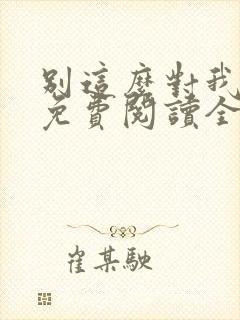 別這麼對我
免費閱讀全
崔某馳